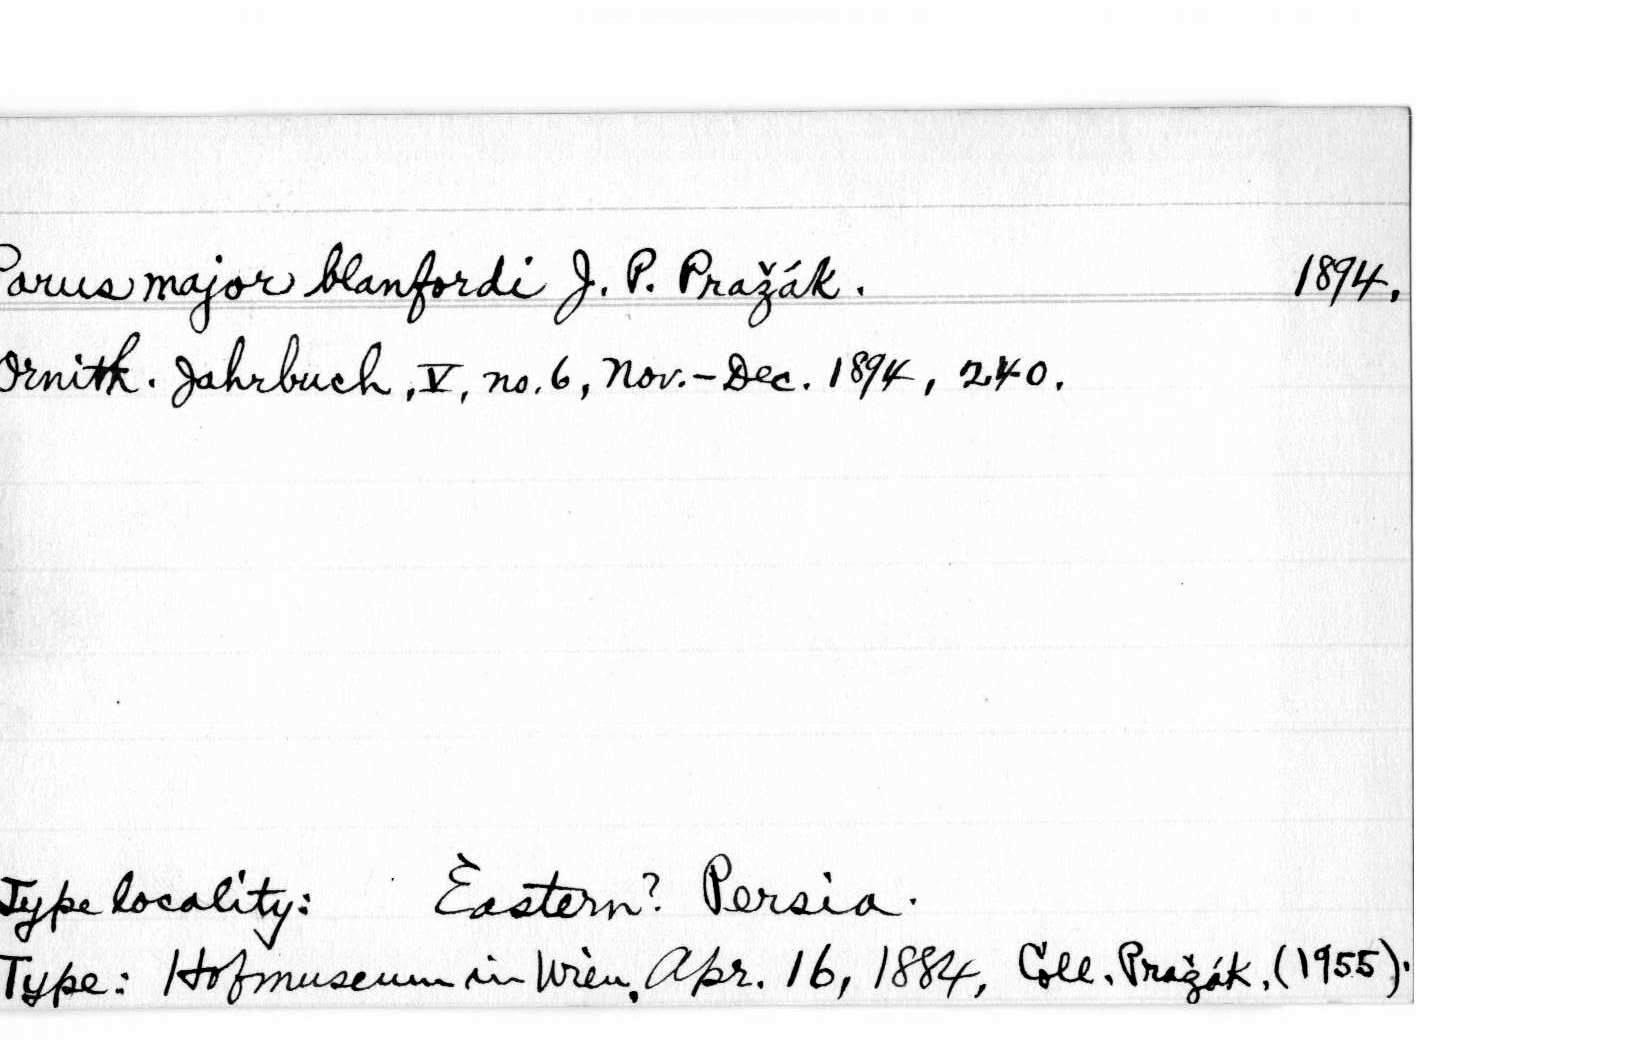 Parus major blanfordi J. P. Pražák. 1894.
Ornith. Jahrbuch, V, no. 6, Nov.-Dec. 1894, 240.
Type locality: Eastern? Persia.
Type: Hofmuseum in Wien, Apr. 16, 1884, Coll. Pražák. (1955).